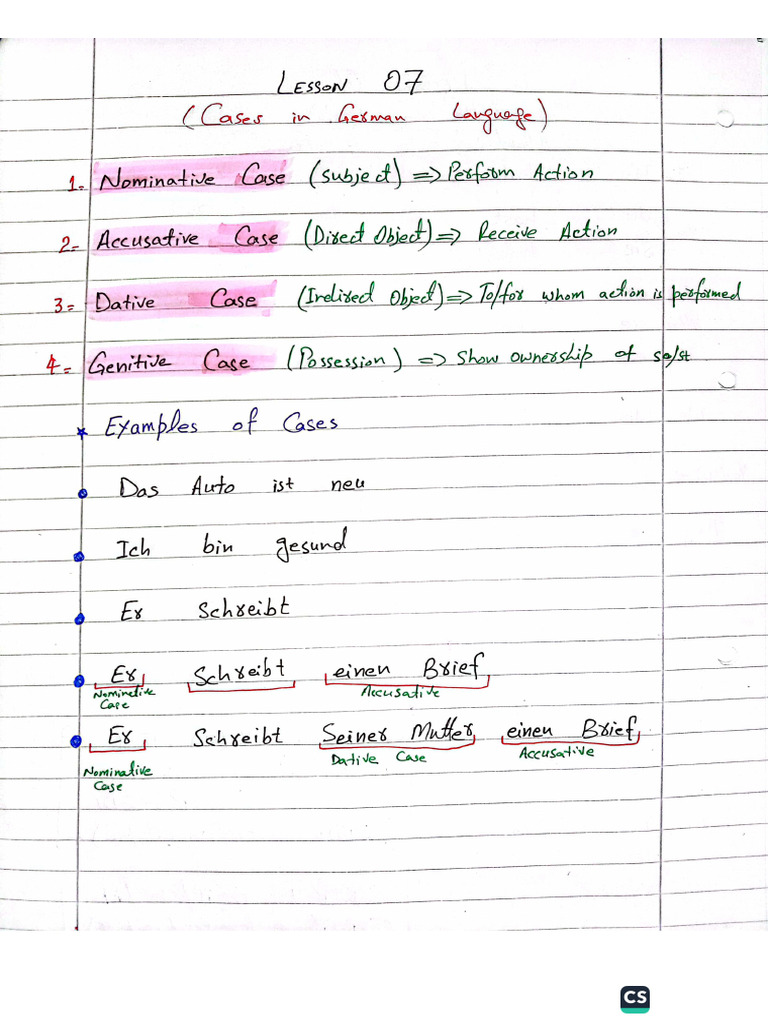 LESSON 07
(Cases in German Language)
1- Nominative Case (Subject) => Perform Action
2- Accusative Case (Direct Object) => Receive Action
3= Dative Case (Indired Object) => To/for whom action is performed
4= Genitive Case (Possession) => Show ownership of so/st
* Examples of Cases
• Das Auto ist neu
• Ich bin gesund
• Er Schreibt
• Er Schreibt einen Brief
Nominative Case Accusative
• Er Schreibt Seiner Mutter einen Brief
Nominative Case Dative Case Accusative
CS